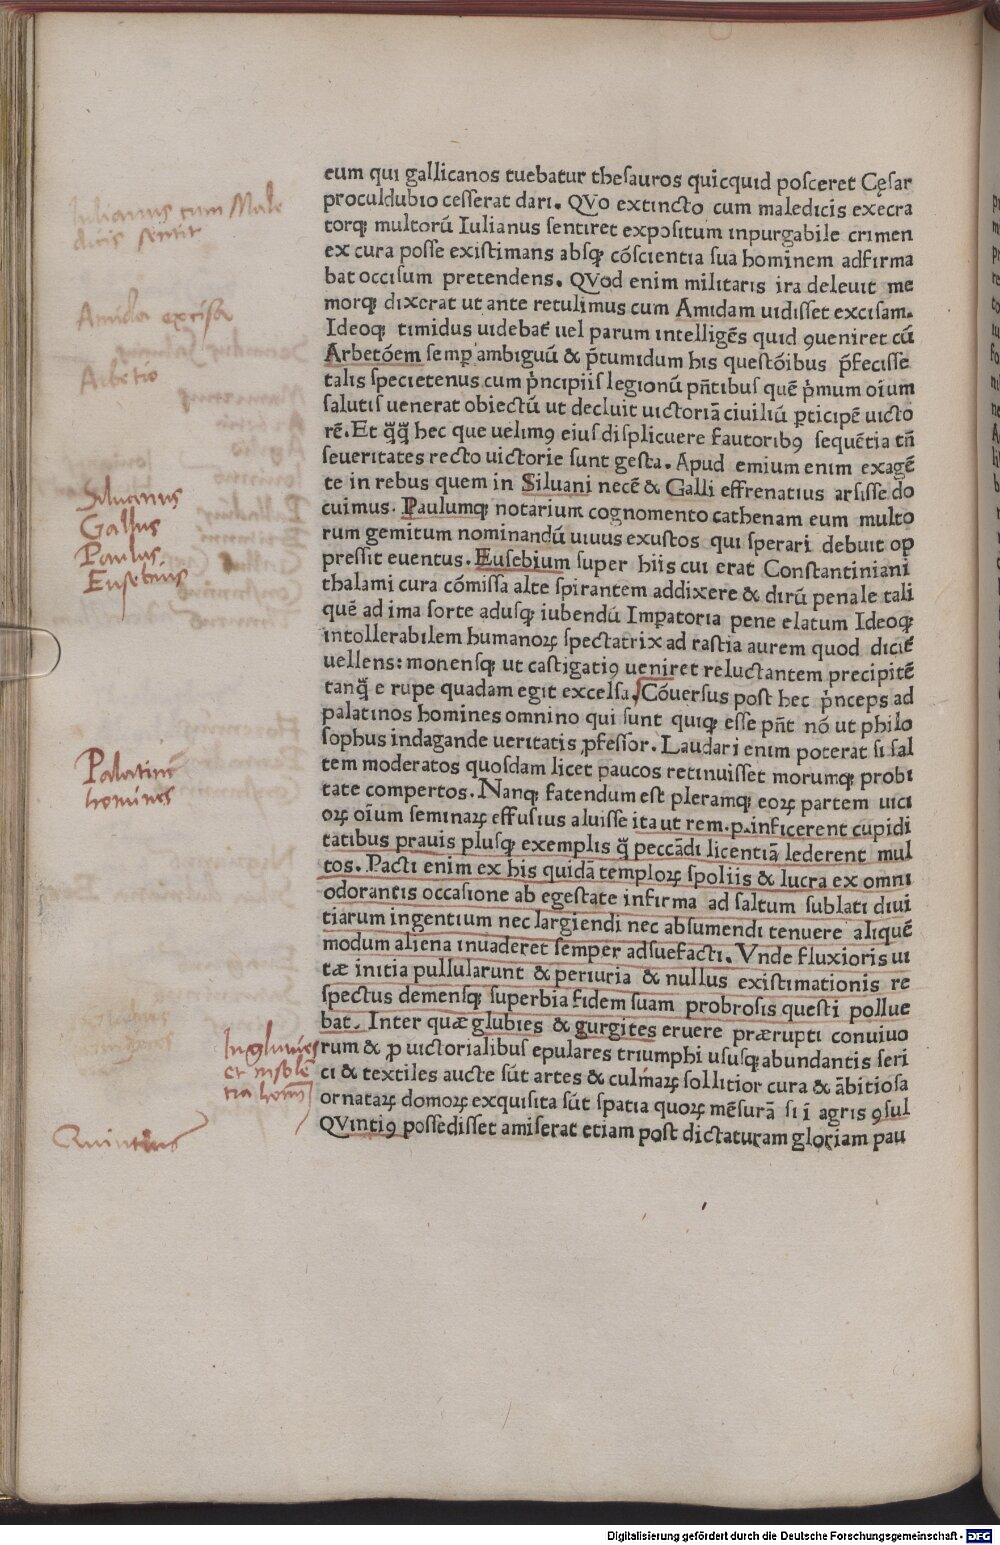 eum qui gallicanos tuebatur thesauros quicquid posceret Cęsar
proculdubio cesserat dari. QVo extincto cum maledicis execra
torqꝫ multorū Iulianus sentiret expositum inpurgabile crimen
ex cura posse existimans absqꝫ cōscientia sua hominem adfirma
bat occisum pretendens. QVod enim militaris ira deleuit me
morqꝫ dixerat ut ante retulimus cum Amidam uidisset excisam.
Ideoqꝫ timidus uidebat̄ uel parum intelligēs quid ꝯueniret cū
Arbetōem semꝑ ambiguū & p̄tumidum his questōibus p̄fecisse
talis specietenus cum p̍ncipiis legionū pn̄tibus quē p̍mum oīum
salutis uenerat obiectū ut decluit uictoriā ciuiliū ꝑticipē uicto
rē. Et q̄q̄ hec que uelimꝯ eius displicuere fautoribꝯ sequētia tn̄
seueritates recto uictorie sunt gesta. Apud emium enim exagē
te in rebus quem in Siluani necē & Galli effrenatius arsisse do
cuimus. Paulumqꝫ notarium cognomento cathenam eum multo
rum gemitum nominandū uiuus exustos qui sperari debuit op
pressit euentus. Eusebium super hiis cui erat Constantiniani
thalami cura cōmissa alte spirantem addixere & dirū penale tali
quē ad ima sorte adusqꝫ iubendū Impatoria pene elatum Ideoqꝫ
intollerabilem humanoꝝ spectatrix ad rastia aurem quod dicit̄
uellens: monensqꝫ ut castigatiꝯ ueniret reluctantem precipitē
tanq̄ e rupe quadam egit excelsa. Cōuersus post hec p̍nceps ad
palatinos homines omnino qui sunt quiqꝫ esse pn̄t nō ut philo
sophus indagande ueritatis ꝓfessor. Laudari enim poterat si sal
tem moderatos quosdam licet paucos retinuisset morumqꝫ probi
tate compertos. Nanqꝫ fatendum est pleramqꝫ eoꝝ partem uici
oꝝ oīum seminaꝝ effusius aluisse ita ut rem.p.inficerent cupidi
tatibus prauis plusqꝫ exemplis q̄ peccādi licentiā lederent mul
tos. Pacti enim ex his quidā temploꝝ spoliis & lucra ex omni
odorantis occasione ab egestate infirma ad saltum sublati diui
tiarum ingentium nec largiendi nec absumendi tenuere aliquē
modum aliena inuaderet semper adsuefacti. Vnde fluxioris ui
tæ initia pullularunt & periuria & nullus existimationis re
spectus demensqꝫ superbia fidem suam probrosis questi pollue
bat. Inter quæ glubies & gurgites eruere prærupti conuiuo
rum & ꝓ uictorialibus epulares triumphi ususqꝫ abundantis seri
ci & textiles aucte sūt artes & culm̄aꝝ sollitior cura & ābitiosa
ornataꝝ domoꝝ exquisita sūt spatia quoꝝ mēsurā si ī agris ꝯsul
QVintiꝯ possedisset amiserat etiam post dictaturam gloriam pau
Iulianus cum Male
dicis sentit
Amida excisa
Arbetio
Siluanus
Gallus
Paulus
Eusebius
Palatini
homines
Ingluuies
et insolē
tia homī
Quintius
Digitalisierung gefördert durch die Deutsche Forschungsgemeinschaft - DFG